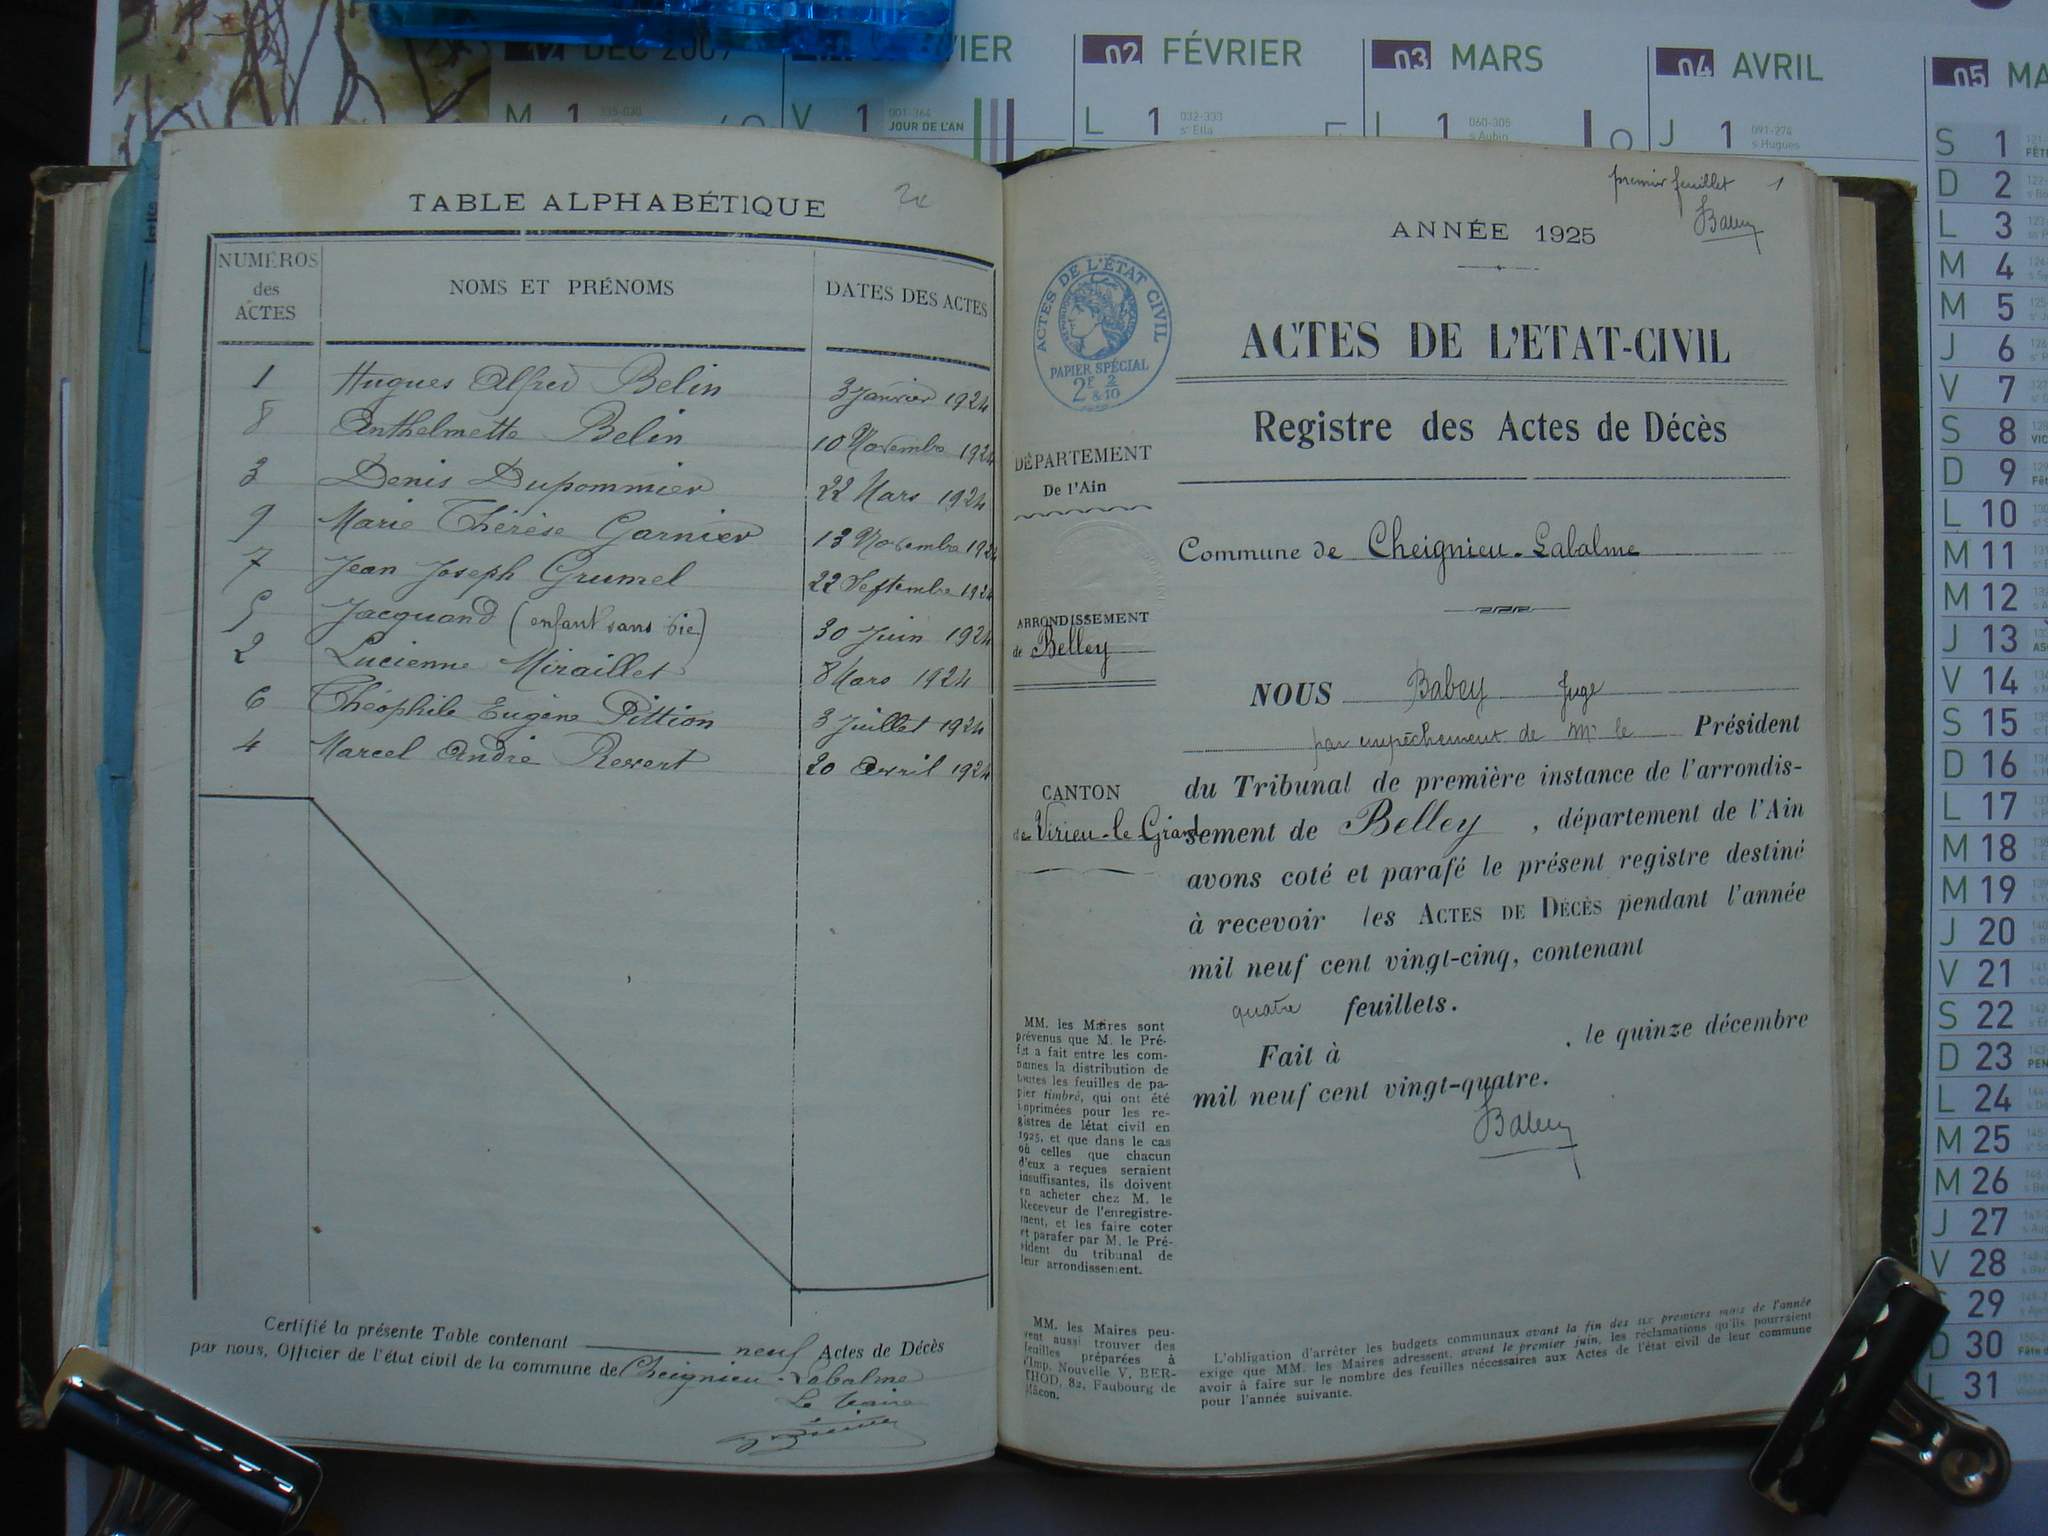 DEC 2009
02 FÉVRIER
03 MARS
04 AVRIL
05 MA
M 1
V 1 001-364
JOUR DE L'AN
L 1 032-333
s° Ella
L 1 060-305
s Aubin
J 1 091-274
s Hugues
S 1
D 2
L 3
M 4
M 5
J 6
V 7
S 8
D 9
L 10
M 11
M 12
J 13
V 14
S 15
D 16
L 17
M 18
M 19
J 20
V 21
S 22
D 23
L 24
M 25
M 26
J 27
V 28
29
D 30
L 31
TABLE ALPHABÉTIQUE
NUMÉROS
des
ACTES
NOMS ET PRÉNOMS
DATES DES ACTES
1 Hugues Alfred Belin 3 Janvier 1924
8 Anthelmette Belin 10 Novembre 1924
3 Denis Dupommier 22 Mars 1924
9 Marie Thérèse Garnier 13 Novembre 1924
7 Jean Joseph Grumel 22 Septembre 1924
5 Jacquand (enfant sans vie) 30 Juin 1924
2 Lucienne Miraillet 8 Mars 1924
6 Théophile Eugène Pittion 3 Juillet 1924
4 Marcel André Revert 20 Avril 1924
Certifié la présente Table contenant neuf Actes de Décès
par nous, Officier de l'état civil de la commune de Cheignieu-Labalme
Le Maire
premier feuillet 1
Babey
ANNÉE 1925
ACTES DE L'ÉTAT CIVIL
PAPIER SPÉCIAL
2F 2
&10
ACTES DE L'ETAT-CIVIL
Registre des Actes de Décès
DÉPARTEMENT
De l'Ain
Commune de Cheignieu-Labalme
ARRONDISSEMENT
de Belley
CANTON
de Virieu-le-Grand
NOUS Babey Juge
par empêchement de Mr le Président
du Tribunal de première instance de l'arrondis-
sement de Belley, département de l'Ain
avons coté et parafé le présent registre destiné
à recevoir les ACTES DE DÉCÈS pendant l'année
mil neuf cent vingt-cinq, contenant
quatre feuillets.
Fait à , le quinze décembre
mil neuf cent vingt-quatre.
Babey
MM. les Maires sont
prévenus que M. le Pré-
fet a fait entre les com-
munes la distribution de
toutes les feuilles de pa-
pier timbré, qui ont été
imprimées pour les re-
gistres de létat civil en
1925, et que dans le cas
où celles que chacun
d'eux a reçues seraient
insuffisantes, ils doivent
en acheter chez M. le
Receveur de l'enregistre-
ment, et les faire coter
et parafer par M. le Pré-
sident du tribunal de
leur arrondissement.
MM. les Maires peu-
vent aussi trouver des
feuilles préparées à
l'Imp. Nouvelle V. BER-
THOD, 82, Faubourg de
Mâcon.
L'obligation d'arrêter les budgets communaux avant la fin des six premiers mois de l'année
exige que MM. les Maires adressent, avant le premier juin, les réclamations qu'ils pourraient
avoir à faire sur le nombre des feuilles nécessaires aux Actes de l'état civil de leur commune
pour l'année suivante.